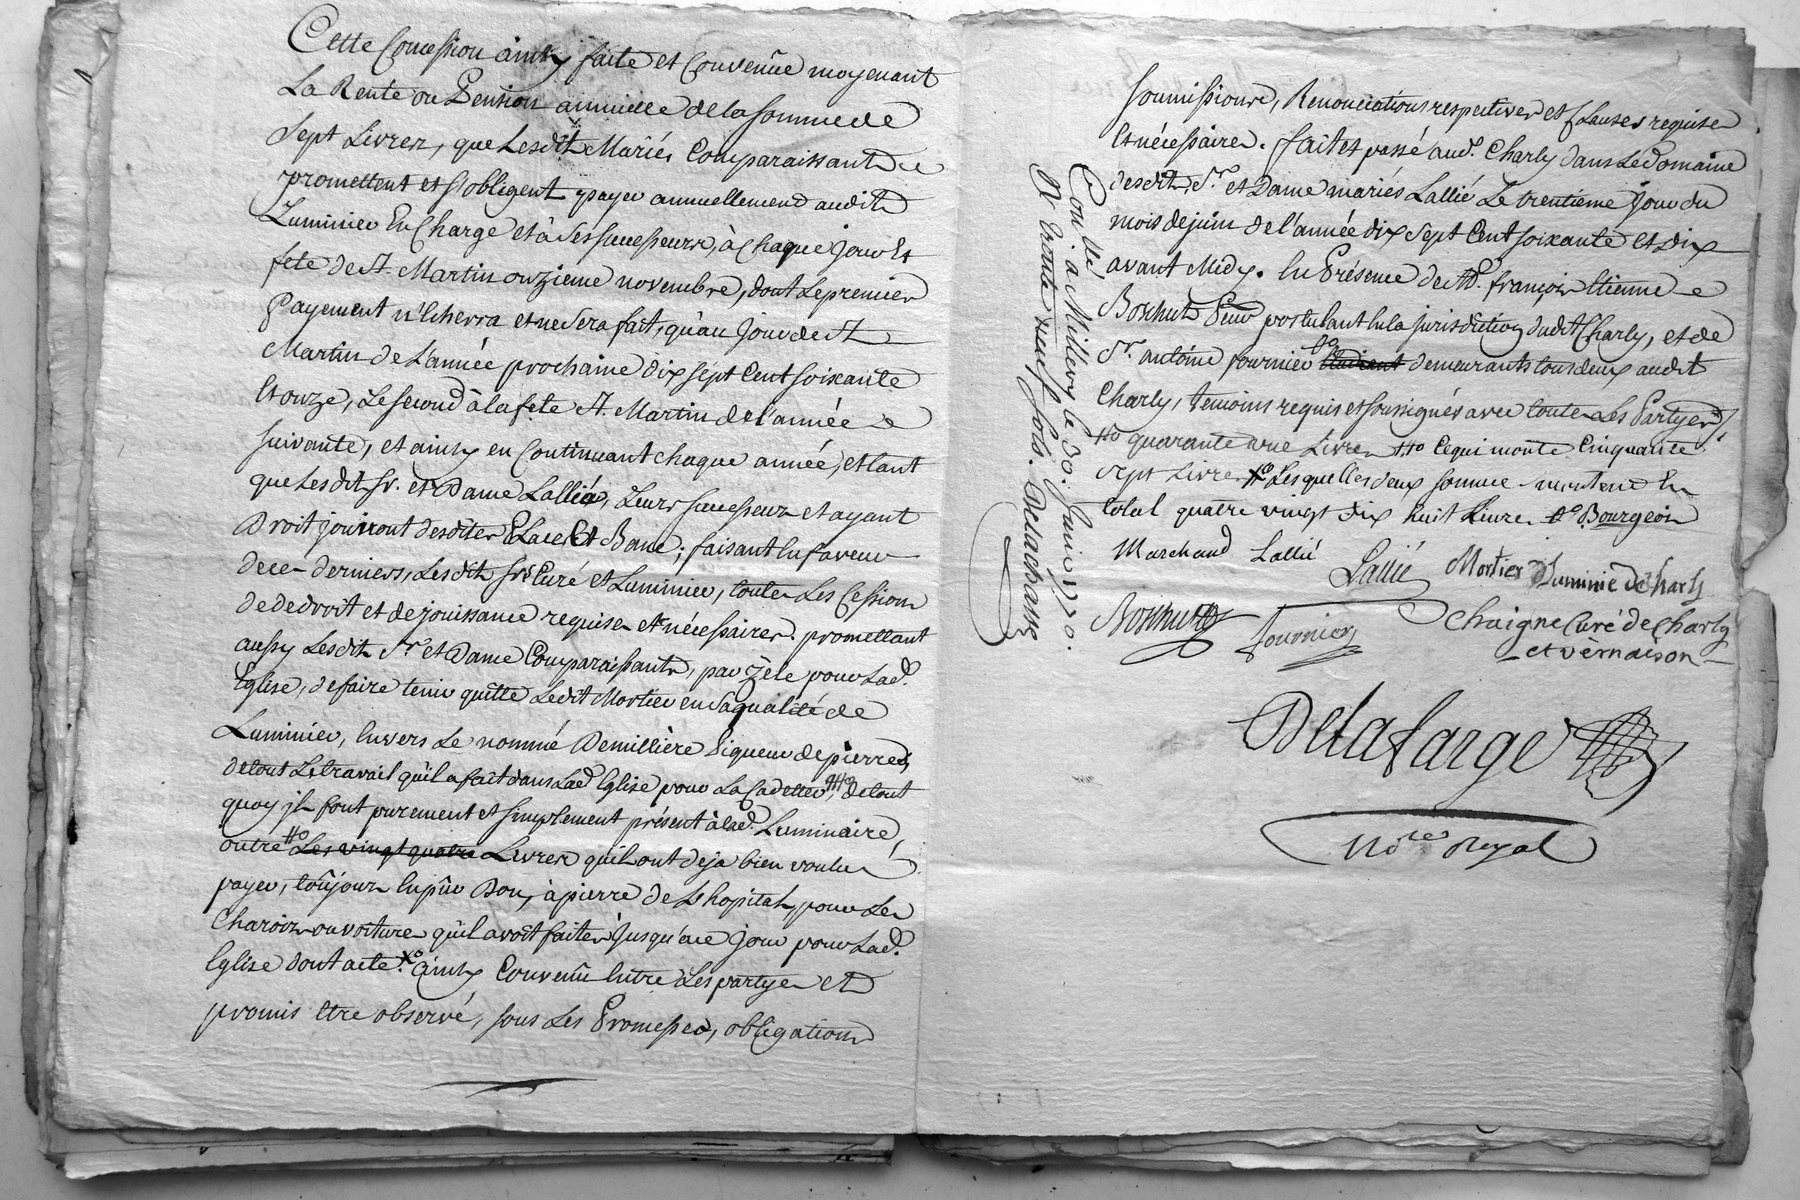 Cette Concession ainsy faite et Convenüe moyenant
La Rente ou Pension annuelle de la somme de
Sept Livres, que Lesdit Mariés Comparaissants
promettent et s'obligent payer annuellement audit
Luminier En Charge et à Ses successeurs, à Chaque jour Et
fete de St. Martin onzieme novembre, dont Le premier
Payement n'Echerra et ne Sera fait, qu'au Jour de St
Martin de L'année prochaine dix sept Cent soixante
Et onze, Le second à la fete St. Martin de l'année
suivante, et ainsy en Continuant chaque année, et tant
que Les dit Sr. et Dame Lallié, Leurs successeurs et ayant
Droit jouiront desdites Place Et Banc; faisant En faveur
de ce derniers, Lesdits Srs Curé et Luminier, toutes Les Cession
de dedroit et de jouissance requises et nécéssaires. promettant
aussy Lesdit Sr. et Dame Comparaissants, par Zéle pour Lad.
Eglise, de faire tenir quitte Ledit Mortier en Sa qualité de
Luminier, Envers Le nommé Demillière Piqueur de pierres,
de tout Le travail qu'il a fait dans Lad. Eglise pour La Cadette, de tout
quoy ils font purement et simplement présent à lad. Luminaire,
outre Les vingt quatre Livres qu'il ont deja bien voulu
payer, toûjours En pûr Don, à pierre de L'hopital, pour Les
Charois ou voiture qu'il avoit faites Jusqu'à ce jour pour Lad.
Eglise dont acte. ainsy Convenû Entre Les partyes et
promis Etre observé, sous Les Promesses, obligations
soumissions, Renonciations respectives et Clauses requises
Et nécéssaires. fait et passé aud. Charly dans Le Domaine
desdits Sr. et Dame mariés Lallié Le trentième jour du
mois de juin de l'année dix sept Cent soixante et dix
avant Midy. En Présence de Me. françois Etienne
Boschut Pr. postulant En la jurisdiction dudit Charly, et de
Sr. antoine fournier demeurants tous deux audit
Charly, temoins requis et soussignés avec toutes Les Partyes
quarante une Livre ce qui monte Cinquante
sept Livre Lesquelles deux somme montent En
total quatre vingt dix huit Livre Bourgeois
Marchand Lallié
Lallié
Mortier Luminié de Charly
Boschut
fournier
Chaigne Curé de Charly
et vernaison
Delafarge
Nore Royal
Contlé à Millery le 30. Juin 1770.
R. trente neuf sols. Delachasse